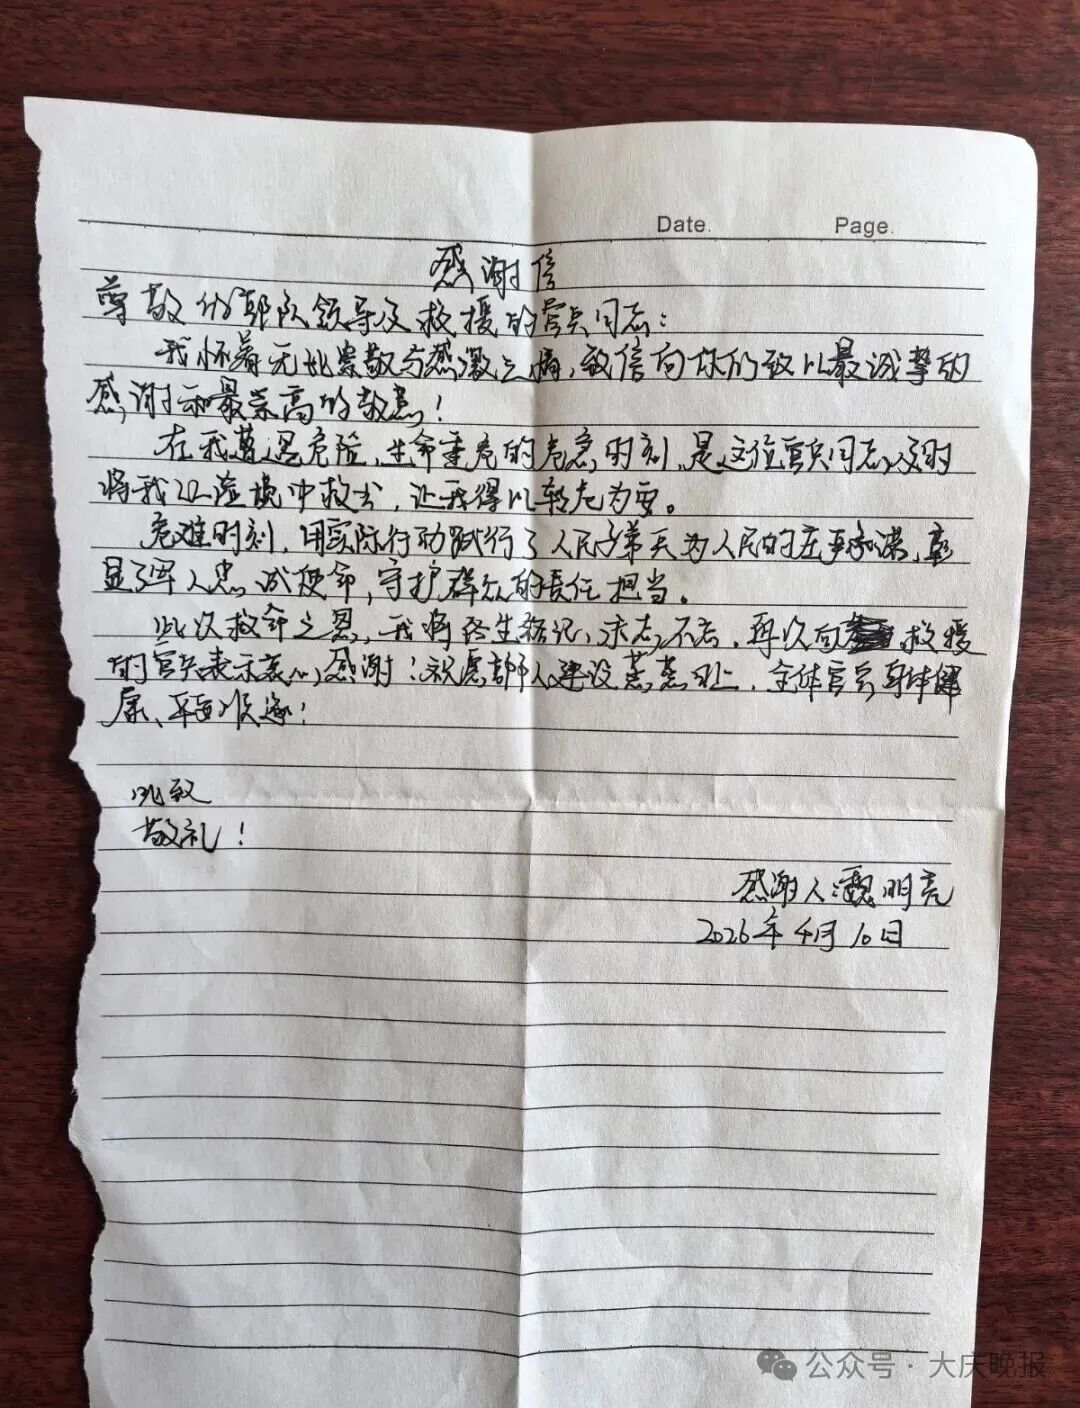 Date.
Page.
感谢信
尊敬的部队领导及救援的官兵同志：
我怀着无比崇敬与感激之情，致信向你们致以最诚挚的
感谢和最崇高的敬意！
在我遭遇危险，生命垂危的危急时刻，是这位官兵同志及时
将我从险境中救出，让我得以转危为安。
危难时刻，用实际行动践行了人民子弟兵为人民的庄严承诺，彰
显了军人忠诚使命，守护群众的责任担当。
此次救命之恩，我将终生铭记，永志不忘，再次向救援
的官兵表示衷心感谢！祝愿部队建设蒸蒸日上，全体官兵身体健
康、平安顺遂！
此致
敬礼！
感谢人：魏明亮
2026年4月10日
公众号·大庆晚报